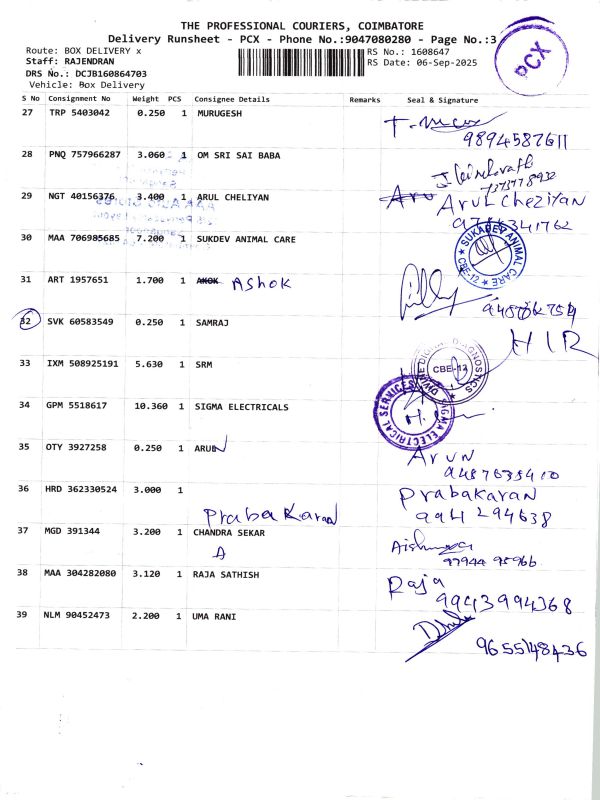 THE PROFESSIONAL COURIERS, COIMBATORE
Delivery Runsheet - PCX - Phone No.:9047080280 - Page No.:3
PCX
Route: BOX DELIVERY x
RS No.: 1608647
Staff: RAJENDRAN
RS Date: 06-Sep-2025
DRS No.: DCJB160864703
Vehicle: Box Delivery
S No Consignment No Weight PCS Consignee Details Remarks Seal & Signature
27 TRP 5403042 0.250 1 MURUGESH
9894587611
28 PNQ 757966287 3.060 1 OM SRI SAI BABA
7373778932
29 NGT 40156376 3.400 1 ARUL CHELIYAN Arul Cheziyan
30 MAA 706985685 7.200 1 SUKDEV ANIMAL CARE
SUKADEV ANIMAL CARE CBE-12
31 ART 1957651 1.700 1 Ashok
32 SVK 60583549 0.250 1 SAMRAJ
HIR
33 IXM 508925191 5.630 1 SRM
DIVINE DIGITAL DIAGNOSTICS CBE-12
34 GPM 5518617 10.360 1 SIGMA ELECTRICALS
SIGMA ELECTRICAL SERVICES
35 OTY 3927258 0.250 1 ARUN
Arun
36 HRD 362330524 3.000 1 Praba Karan
Prabakaran
9941294638
37 MGD 391344 3.200 1 CHANDRA SEKAR
A
97944 95966
38 MAA 304282080 3.120 1 RAJA SATHISH
Raja
9943994368
39 NLM 90452473 2.200 1 UMA RANI
9655148436